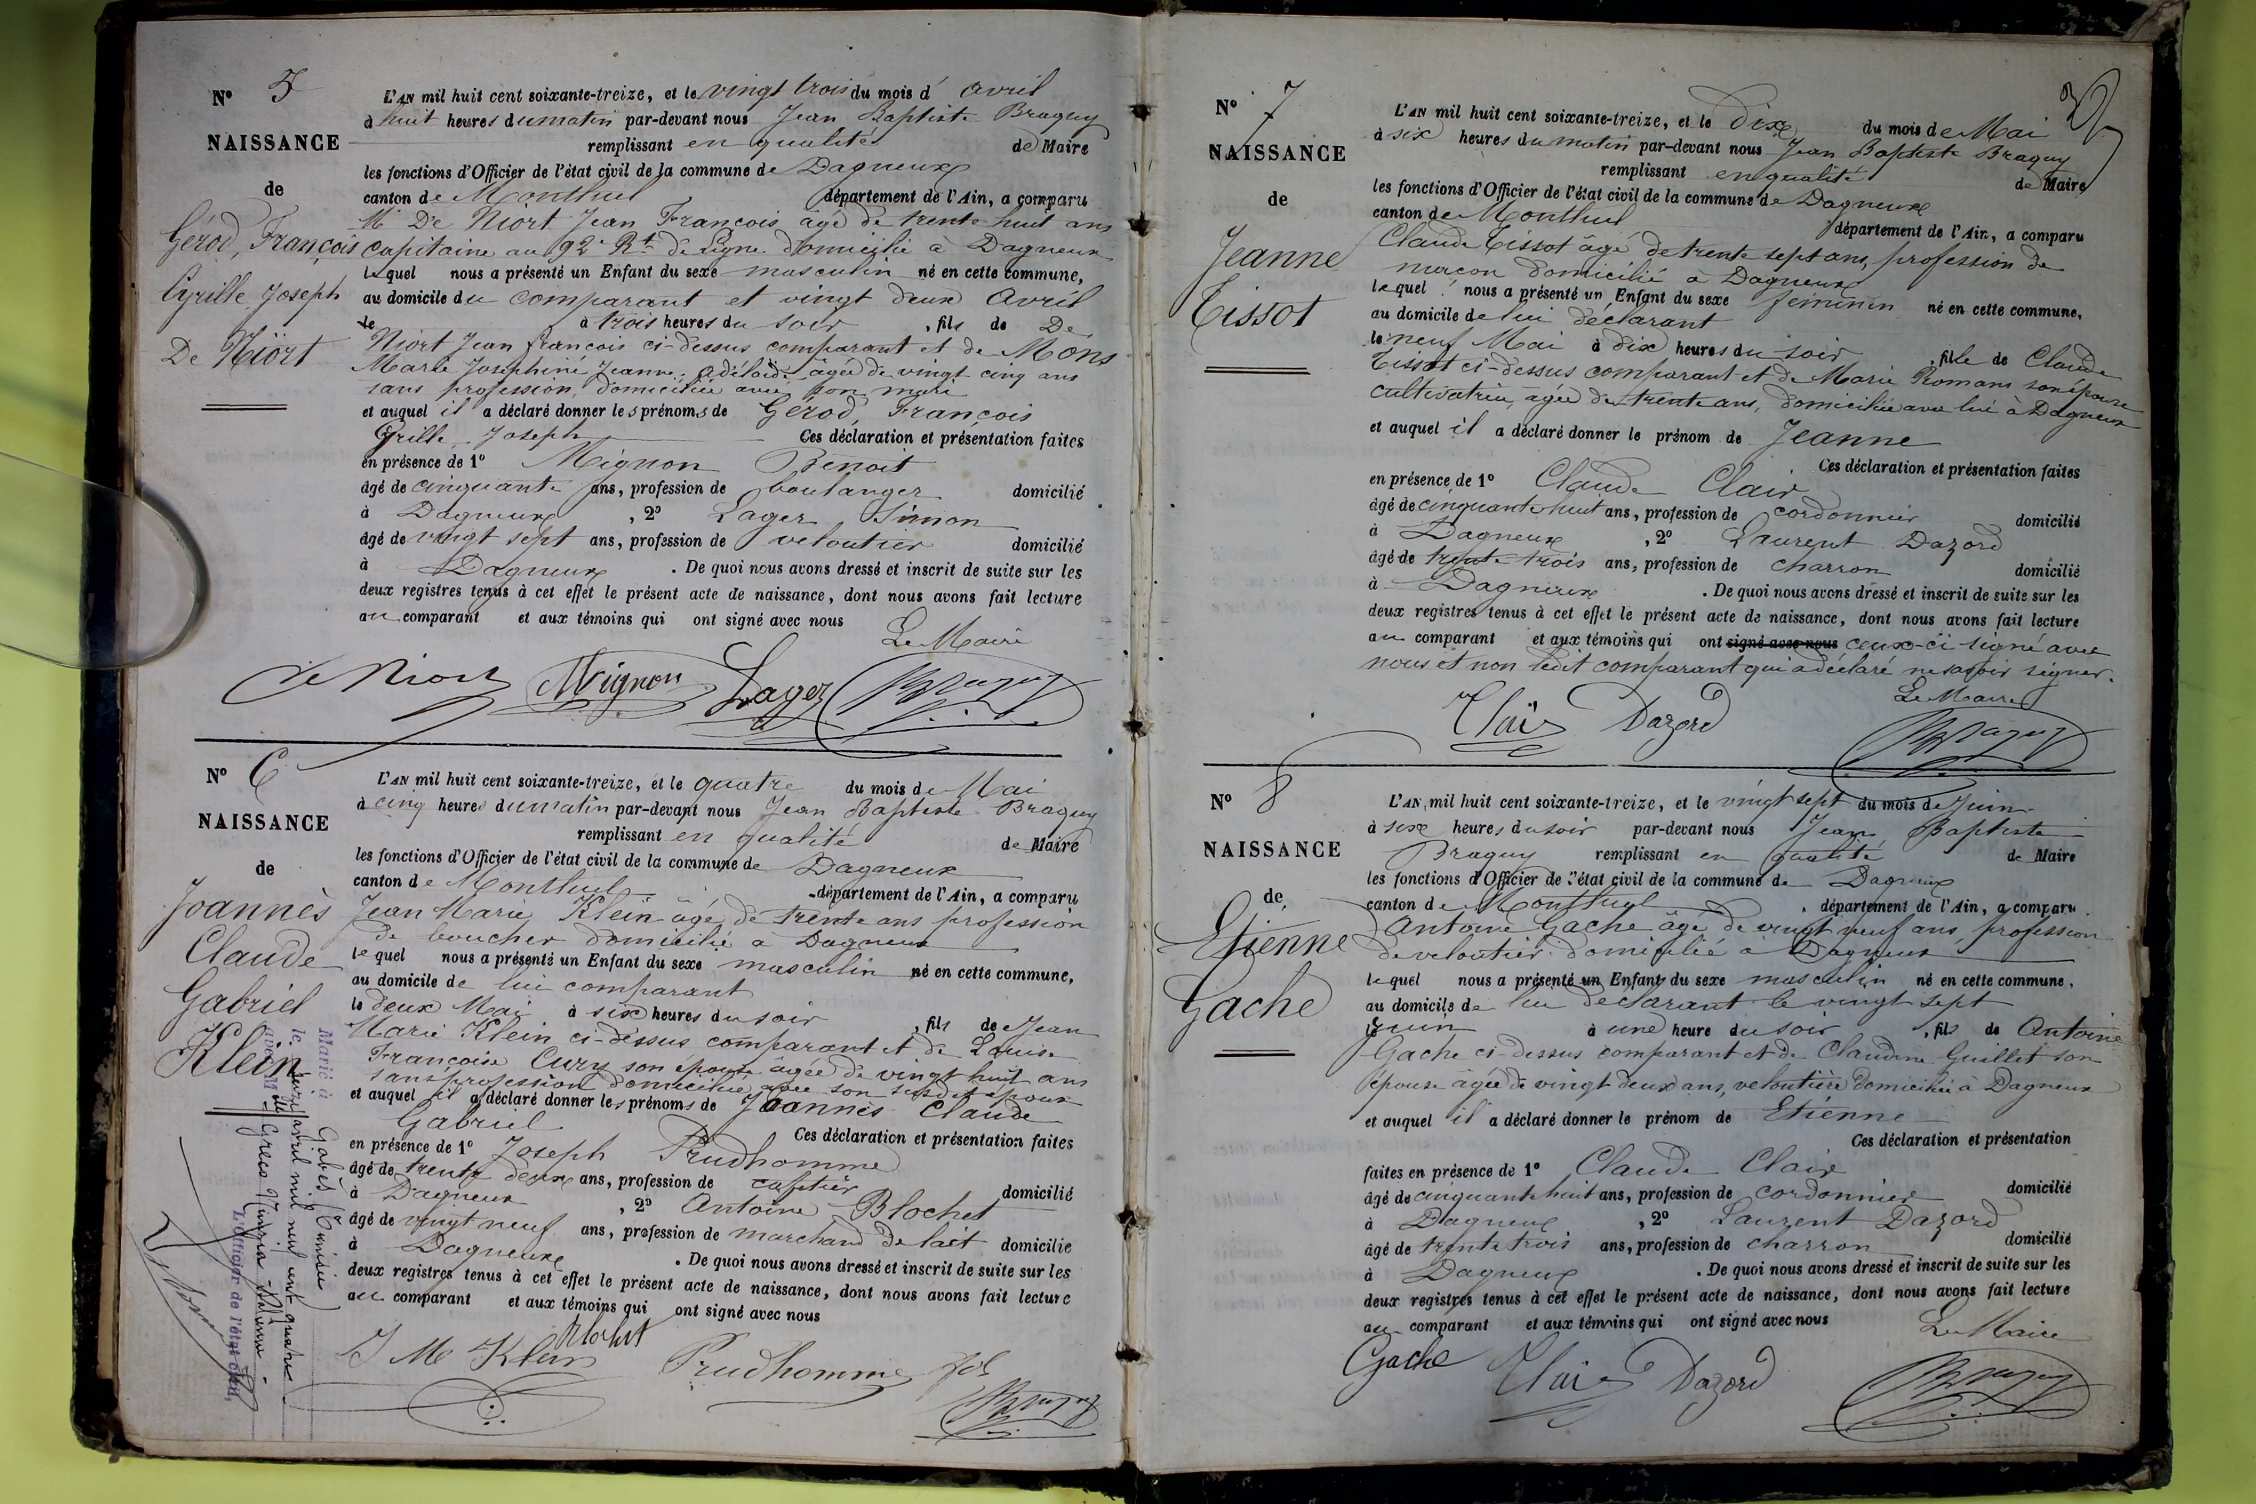 N° 5
NAISSANCE
de
Gérod, François
Cyrille Joseph
De Niort
L'AN mil huit cent soixante-treize, et le vingt trois du mois d' avril
à huit heures du matin par-devant nous Jean Baptiste Braguy
remplissant en qualité de Maire
les fonctions d'Officier de l'état civil de la commune de Dagneux
canton de Montluel département de l'Ain, a comparu
Mr De Niort Jean François âgé de trente huit ans
capitaine au 92e Rt de Ligne domicilié à Dagneux
lequel nous a présenté un Enfant du sexe masculin né en cette commune,
au domicile du comparant et vingt deux Avril
le à trois heures du soir , fils de De
Niort Jean françois ci-dessus comparant et de Mons
Marie Joséphine Jeanne Adélaïde âgée de vingt cinq ans
sans profession, domiciliée avec son mari
et auquel il a déclaré donner les prénoms de Gérod, François
Cyrille Joseph Ces déclaration et présentation faites
en présence de 1° Mignon Benoit
âgé de cinquante ans, profession de boulanger domicilié
à Dagneux , 2° Lager Simon
âgé de vingt sept ans, profession de veloutier domicilié
à Dagneux . De quoi nous avons dressé et inscrit de suite sur les
deux registres tenus à cet effet le présent acte de naissance, dont nous avons fait lecture
au comparant et aux témoins qui ont signé avec nous
Le Maire
de Niort Mignon Lager Braguy
N° 6
NAISSANCE
de
Joannès
Claude
Gabriel
Klein
Marié à Gabès (Tunisie)
le avril mil neuf cent quatre
avec
L'officier de l'état civil,
L'AN mil huit cent soixante-treize, et le quatre du mois de Mai
à cinq heures du matin par-devant nous Jean Baptiste Braguy
remplissant en qualité de Maire
les fonctions d'Officier de l'état civil de la commune de Dagneux
canton de Montluel département de l'Ain, a comparu
Jean Marie Klein âgé de trente ans profession
de boucher domicilié à Dagneux
lequel nous a présenté un Enfant du sexe masculin né en cette commune,
au domicile de lui comparant
le deux Mai à six heures du soir , fils de Jean
Marie Klein ci-dessus comparant et de Louise
Françoise Cury son épouse âgée de vingt huit ans
sans profession domiciliée avec son susdit époux
et auquel il a déclaré donner les prénoms de Joannès Claude
Gabriel Ces déclaration et présentation faites
en présence de 1° Joseph Prudhomme
âgé de trente deux ans, profession de cafetier domicilié
à Dagneux , 2° Antoine Blochet
âgé de vingt neuf ans, profession de marchand de lait domicilié
à Dagneux . De quoi nous avons dressé et inscrit de suite sur les
deux registres tenus à cet effet le présent acte de naissance, dont nous avons fait lecture
au comparant et aux témoins qui ont signé avec nous
J M Klein Blochet Prudhomme fils Braguy
N° 7
NAISSANCE
de
Jeanne
Tissot
L'AN mil huit cent soixante-treize, et le dix du mois de Mai
à six heures du matin par-devant nous Jean Baptiste Braguy
remplissant en qualité de Maire
les fonctions d'Officier de l'état civil de la commune de Dagneux
canton de Montluel département de l'Ain, a comparu
Claude Tissot âgé de trente sept ans, profession de
maçon domicilié à Dagneux
lequel nous a présenté un Enfant du sexe féminin né en cette commune,
au domicile de lui déclarant
le neuf Mai à dix heures du soir , fille de Claude
Tissot ci-dessus comparant et de Marie Romans son épouse
cultivatrice, âgée de trente ans, domiciliée avec lui à Dagneux
et auquel il a déclaré donner le prénom de Jeanne
Ces déclaration et présentation faites
en présence de 1° Claude Clair
âgé de cinquante huit ans, profession de cordonnier domicilié
à Dagneux , 2° Laurent Dazord
âgé de trente trois ans, profession de charron domicilié
à Dagneux . De quoi nous avons dressé et inscrit de suite sur les
deux registres tenus à cet effet le présent acte de naissance, dont nous avons fait lecture
au comparant et aux témoins qui ont signé avec nous ceux-ci signé avec
nous et non ledit comparant qui a déclaré ne savoir signer.
Le Maire
Clair Dazord Braguy
N° 8
NAISSANCE
de
Etienne
Gache
L'AN mil huit cent soixante-treize, et le vingt sept du mois de Juin
à six heures du soir par-devant nous Jean Baptiste
Braguy remplissant en qualité de Maire
les fonctions d'Officier de l'état civil de la commune de Dagneux
canton de Montluel , département de l'Ain, a comparu
Antoine Gache âgé de vingt neuf ans profession
de veloutier domicilié à Dagneux
lequel nous a présenté un Enfant du sexe masculin né en cette commune,
au domicile de lui déclarant le vingt sept
le Juin à une heure du soir , fils de Antoine
Gache ci-dessus comparant et de Claudine Guillet son
épouse âgée de vingt deux ans, veloutière domiciliée à Dagneux
et auquel il a déclaré donner le prénom de Etienne
Ces déclaration et présentation
faites en présence de 1° Claude Clair
âgé de cinquante huit ans, profession de cordonnier domicilié
à Dagneux , 2° Laurent Dazord
âgé de trente trois ans, profession de charron domicilié
à Dagneux . De quoi nous avons dressé et inscrit de suite sur les
deux registres tenus à cet effet le présent acte de naissance, dont nous avons fait lecture
au comparant et aux témoins qui ont signé avec nous
Le Maire
Gache Clair Dazord Braguy